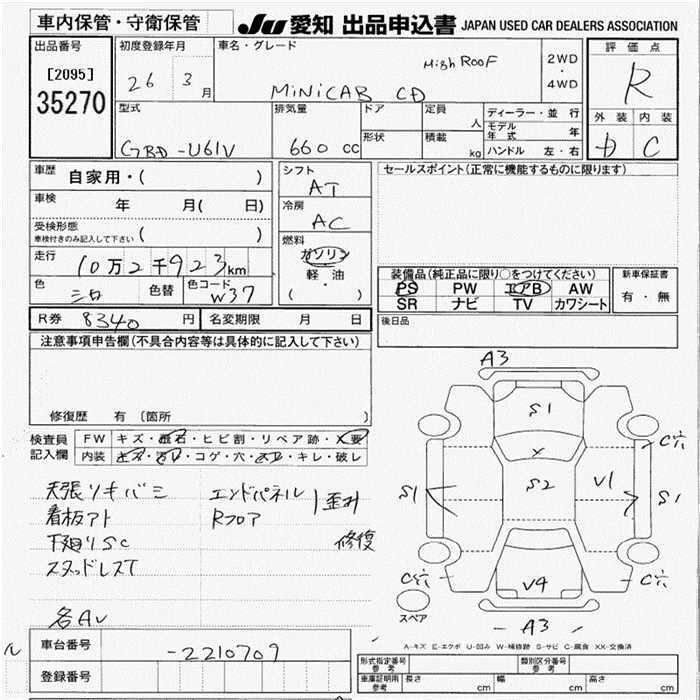 車内保管・守衛保管
JU 愛知 出品申込書 JAPAN USED CAR DEALERS ASSOCIATION
出品番号
[2095]
35270
初度登録年月
26 3月
車名・グレード
High ROOF
MiNiCAB CD
2WD
・
4WD
評価点
R
外装 内装
D C
型式
GBD-U61V
排気量
660 cc
ドア
形状
定員
人
積載
kg
ディーラー・並行
モデル年式 年
ハンドル 左・右
車歴 自家用・( )
車検 年 月( 日)
受検形態
車検付きのみ記入して下さい ( )
走行 10万2千923km
色 シロ 色替 色コード W37
シフト
AT
冷房
AC
燃料
ガソリン
軽・油
( ・ )
セールスポイント(正常に機能するものに限ります)
装備品(純正品に限り○をつけてください)
PS PW エアB AW
SR ナビ TV カワシート
新車保証書
有・無
後日品
R券 8340 円 名変期限 月 日
注意事項申告欄(不具合内容等は具体的に記入して下さい)
修復歴 有 〔箇所 〕
検査員
記入欄
FW キズ・飛石・ヒビ割・リペア跡・X要
内装 キズ・汚レ・コゲ・穴・スレ・キレ・破レ
天張リキバミ
看板アト
下廻りSC
スタッドレスT
各AU
エンドパネル
Rフロア
歪み
修復
A3
S1
C穴
S2
V1
S1
S1
C穴
V4
C穴
スペア
- A3 -
A-キズ E-エクボ U-凹み W-補修跡 S-サビ C-腐食 XX-交換済
車台番号 -2210709
登録番号
形式指定番号
参考
類別区分番号
参考
車庫証明用
参考
長さ cm 幅 cm 高さ cm